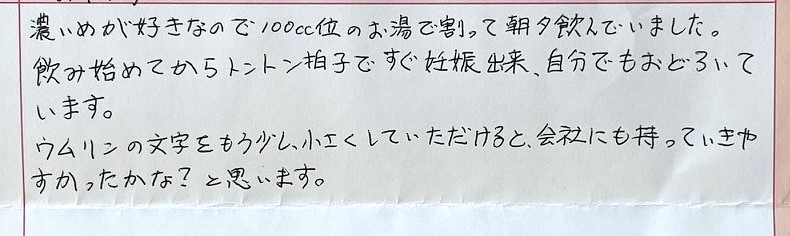 濃いめが好きなので100cc位のお湯で割って朝夕飲んでいました。
飲み始めてからトントン拍子ですぐ妊娠出来、自分でもおどろいて
います。
ウムリンの文字をもう少し、小さくしていただけると、会社にも持っていきや
すかったかな？と思います。